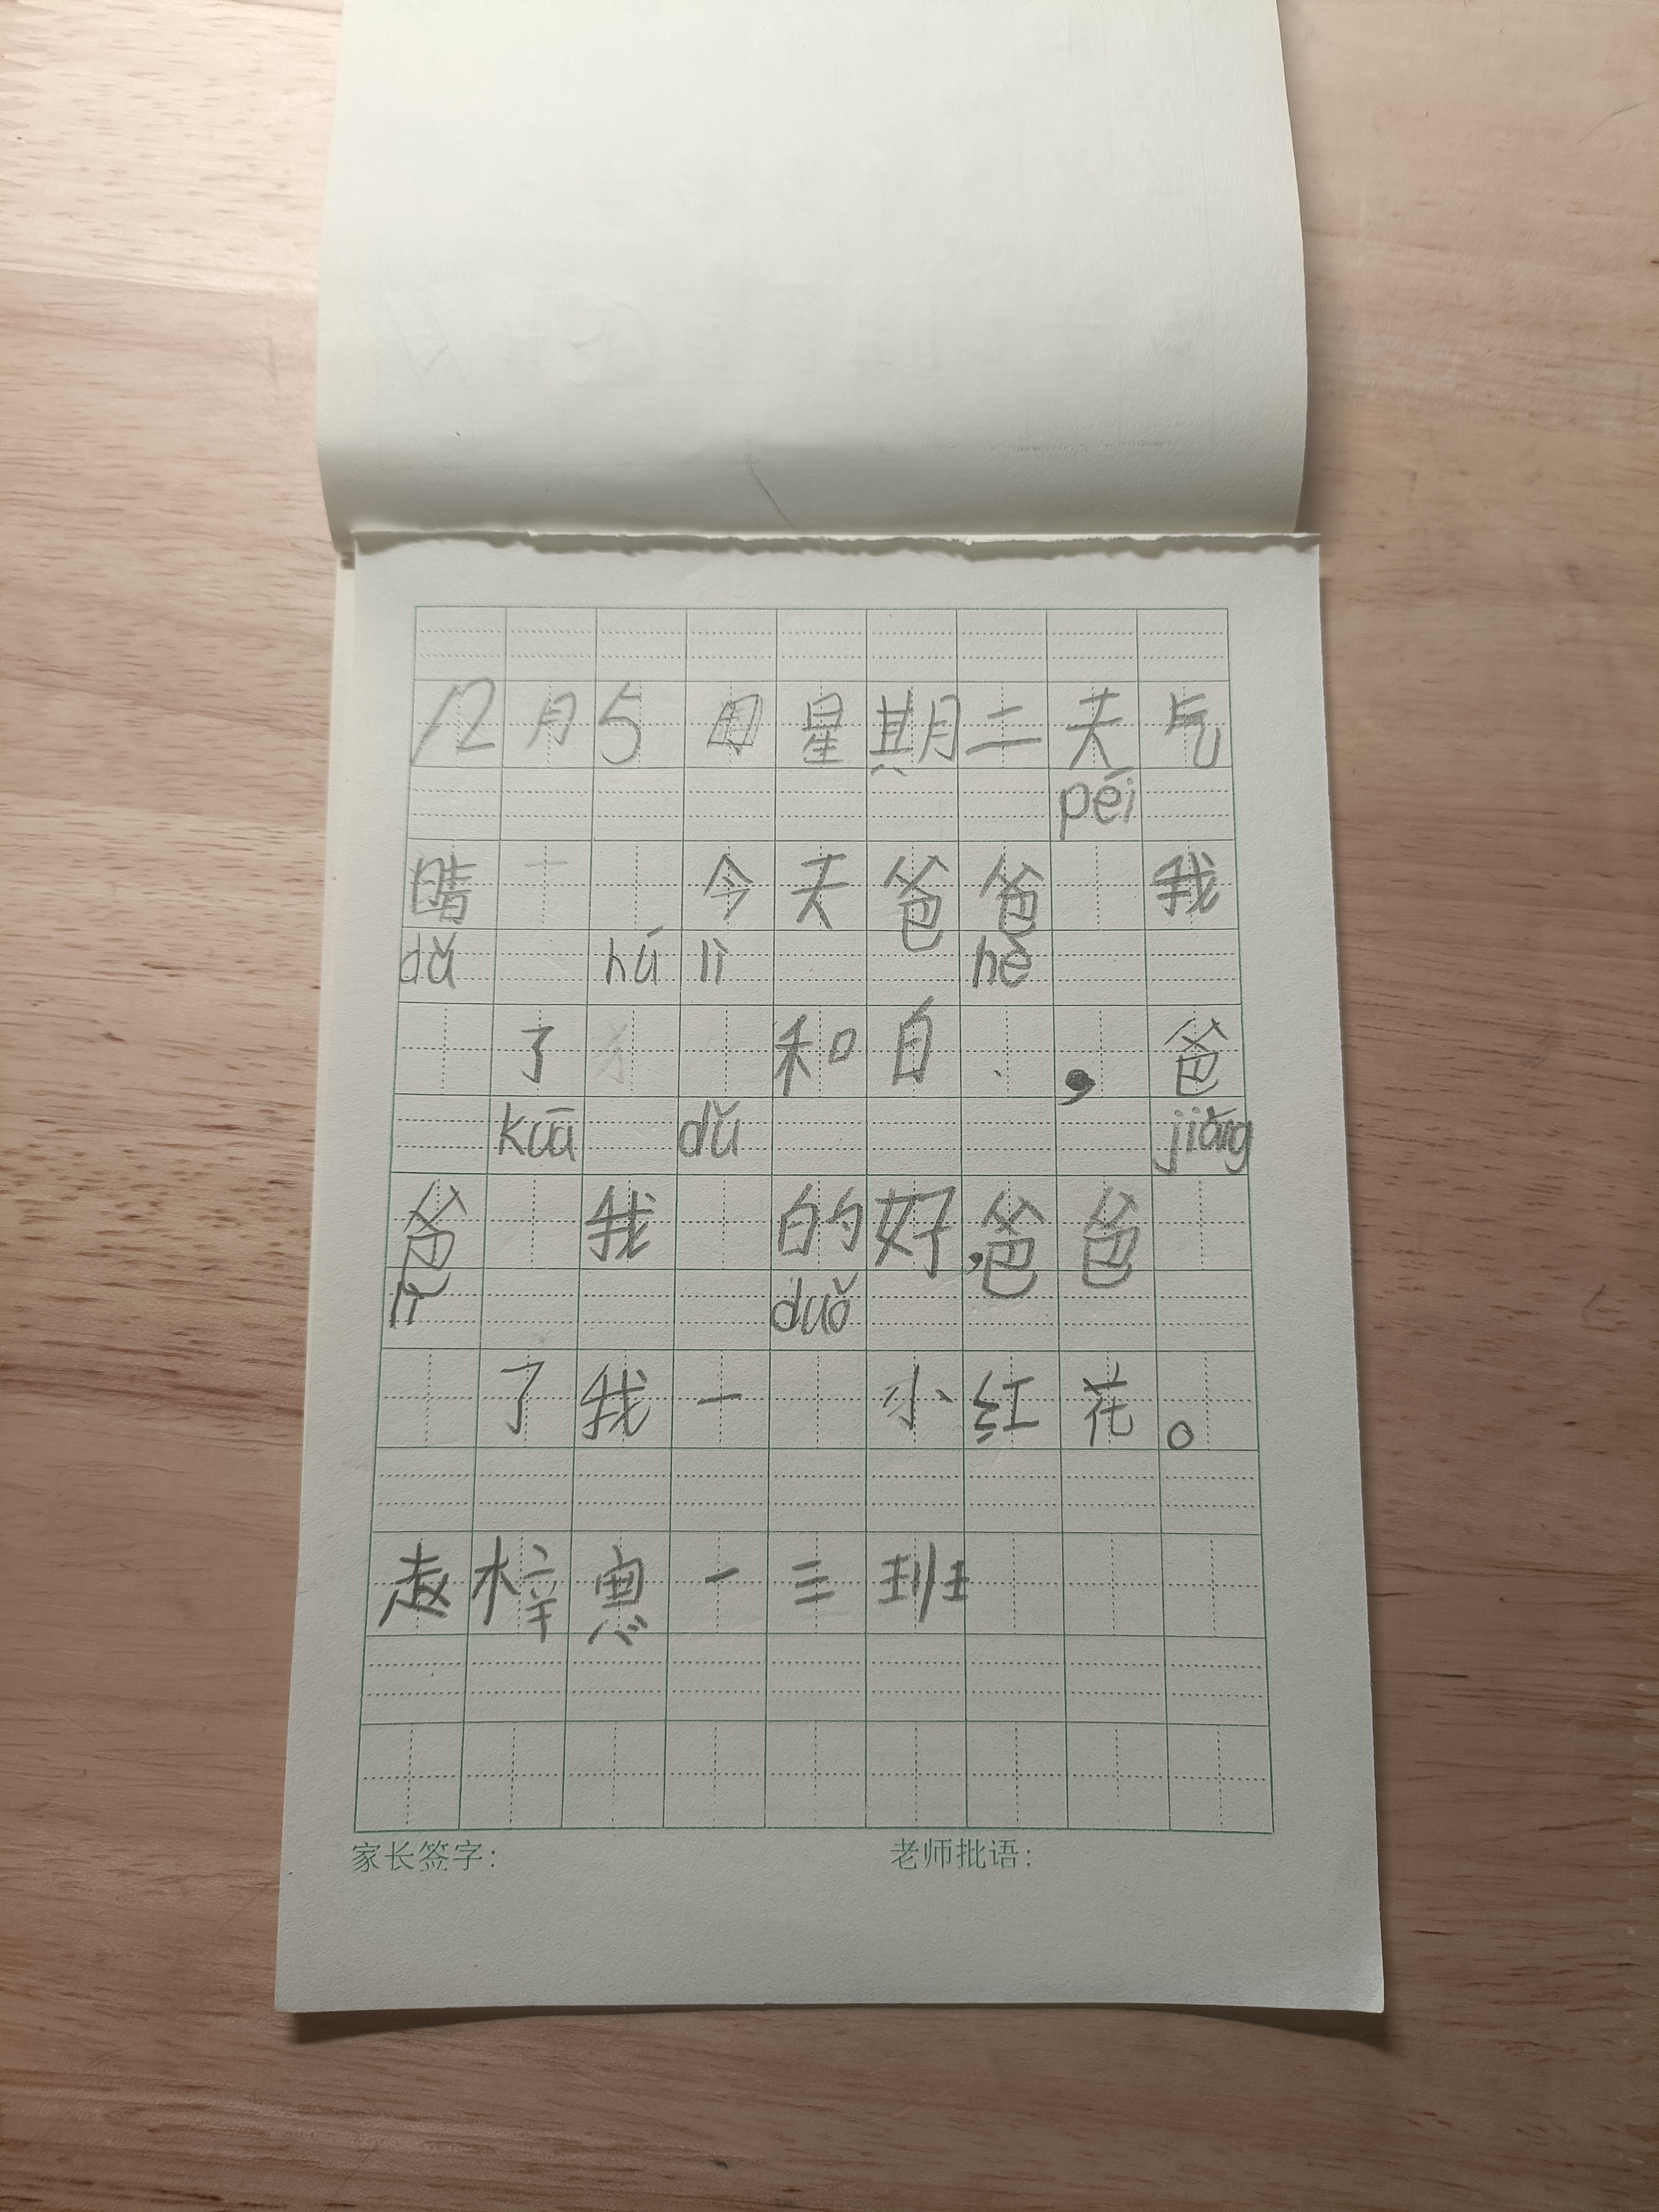 12月5日星期二天气
péi
晴 今天爸爸 我
dǔ hú lì hè
了 和白 ，爸
kuā dǔ jiǎng
爸 我 的好，爸爸
lì duǒ
了我一 小红花。
赵梓惠一三班
家长签字： 老师批语：